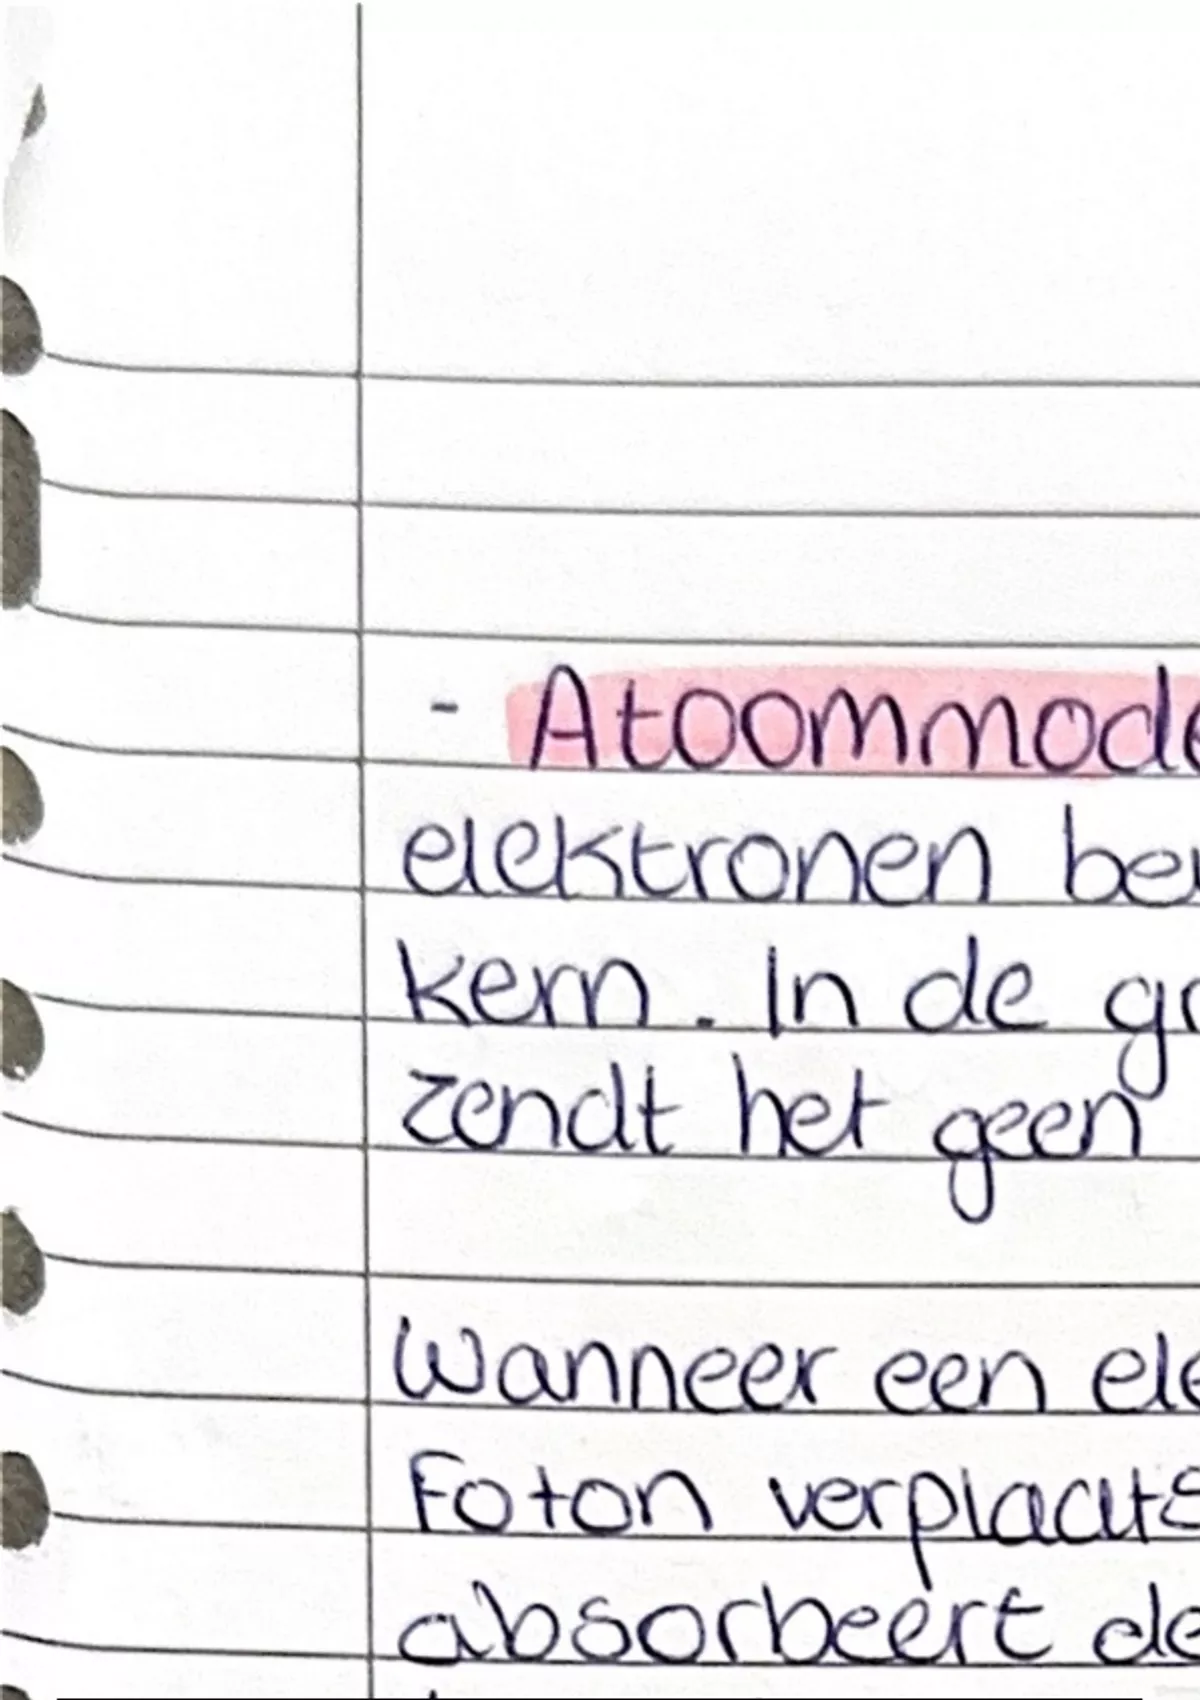 - Atoommode
elektronen be
kern. In de gr
zendt het geen
Wanneer een ele
Foton verplaats
absorbeert de